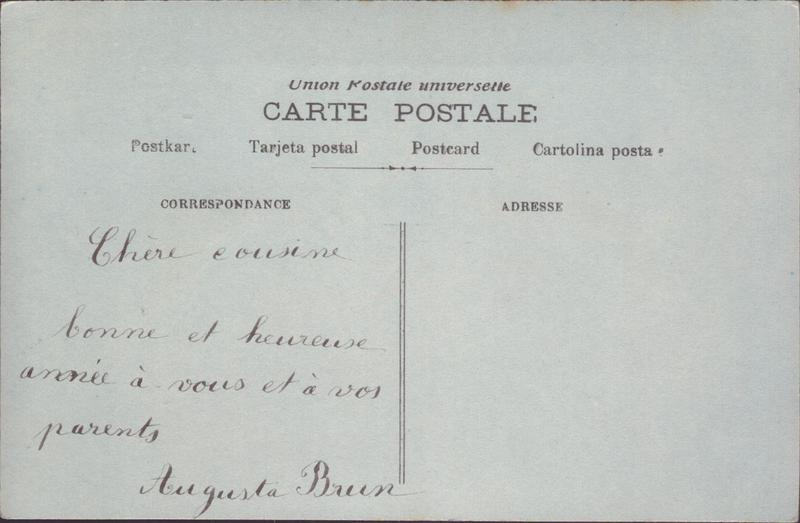 Union Postale universelle
CARTE POSTALE
Postkar. Tarjeta postal Postcard Cartolina posta
CORRESPONDANCE ADRESSE
Chère cousine
bonne et heureuse
année à vous et à vos
parents
Augusta Brun